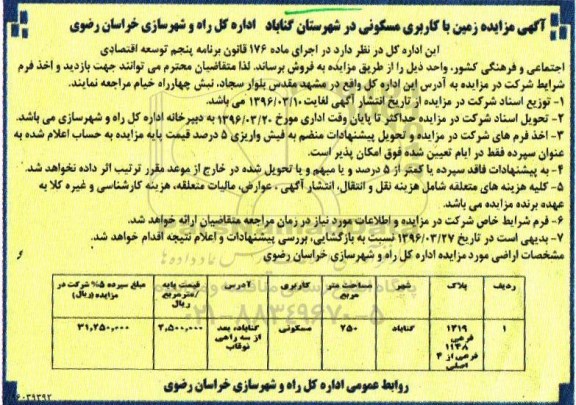 آگهی مزایده زمین با کاربری مسکونی در شهرستان گناباد اداره کل راه و شهرسازی خراسان رضوی
این اداره کل در نظر دارد در اجرای ماده ۱۷۶ قانون برنامه پنجم توسعه اقتصادی
اجتماعی و فرهنگی کشور، واحد ذیل را از طریق مزایده به فروش برساند. لذا متقاضیان محترم می توانند جهت بازدید و اخذ فرم
شرایط شرکت در مزایده به آدرس این اداره کل واقع در مشهدمقدس بلوار سجاد، نبش چهارراه خیام مراجعه نمایند.
۱- توزیع اسناد شرکت در مزایده از تاریخ انتشار آگهی لغایت ۱۳۹۶/۰۳/۱۰ می باشد.
۲- تحویل اسناد شرکت در مزایده حداکثر تا پایان وقت اداری مورخ ۱۳۹۶/۰۳/۲۰ به دبیرخانه اداره کل راه و شهرسازی می باشد.
۳- اخذ فرم های شرکت در مزایده و تحویل پیشنهادات منضم به فیش واریزی ۵ درصد قیمت پایه مزایده به حساب اعلام شده به
عنوان سپرده فقط در ایام تعیین شده فوق امکان پذیر است.
۴- به پیشنهادات فاقد سپرده یا کمتر از ۵ درصد و یا مبهم و یا تحویل شده در خارج از موعد مقرر ترتیب اثر داده نخواهد شد.
۵- کلیه هزینه های متعلقه شامل هزینه نقل و انتقال، انتشار آگهی ، عوارض، مالیات متعلقه، هزینه کارشناسی و غیره کلا به
عهده برنده مزایده می باشد.
۶- فرم شرایط خاص شرکت در مزایده و اطلاعات مورد نیاز در زمان مراجعه متقاضیان ارائه خواهد شد.
۷- بدیهی است در تاریخ ۱۳۹۶/۰۳/۲۷ نسبت به بازگشایی، بررسی پیشنهادات و اعلام نتیجه اقدام خواهد شد.
مشخصات اراضی مورد مزایده اداره کل راه و شهرسازی خراسان رضوی
ردیف پلاک شهر مساحت متر مربع کاربری آدرس قیمت پایه /مترمربع ریال مبلغ سپرده ۵% شرکت در مزایده (ریال)
۱ ۱۲۱۹ فرعی ۱۱۳۸ فرعی از ۴ اصلی گناباد ۲۵۰ مسکونی گناباد، بعد از سه راهی نوقاب ۲,۵۰۰,۰۰۰ ۳۱,۲۵۰,۰۰۰
۰۲۱-۸۸۳۴۹۶۷۰-۵
روابط عمومی اداره کل راه و شهرسازی خراسان رضوی
۶۰۳۹۳۹۲